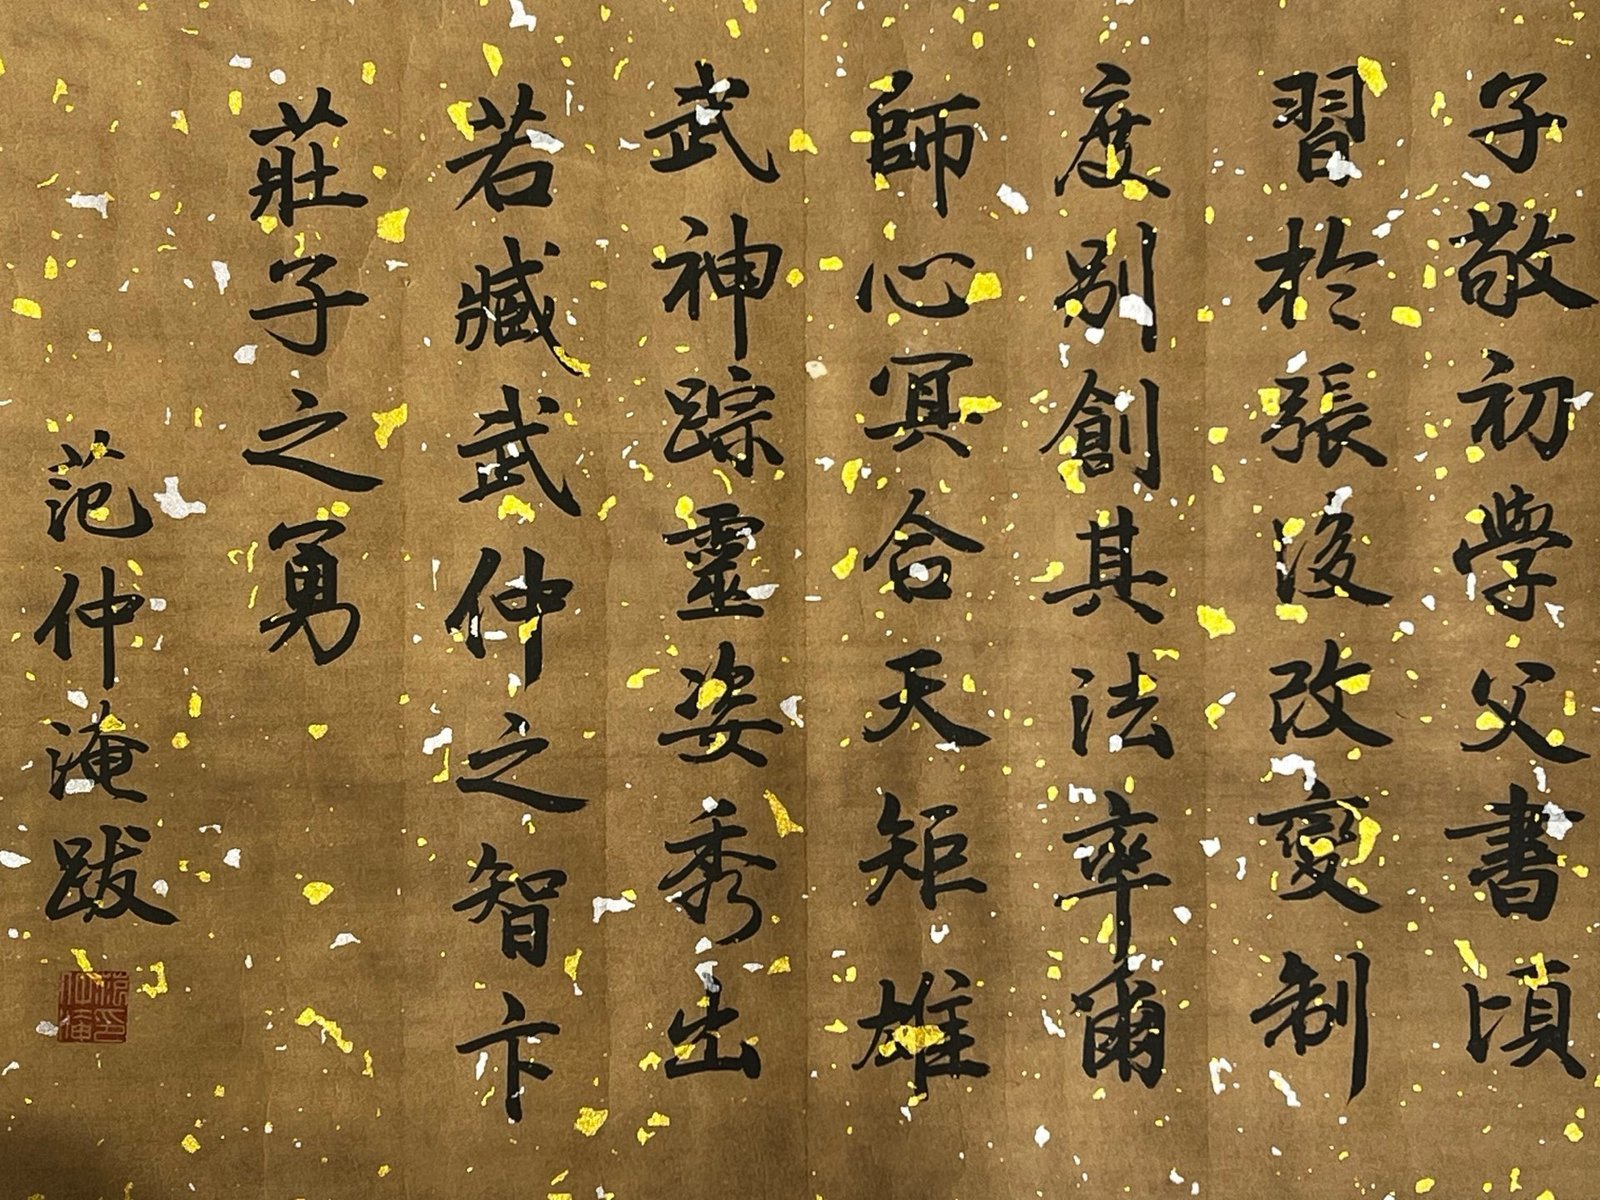 子敬初學父書頃
習於張後改變制
度別創其法率爾
師心冥合天矩雄
武神踪靈姿秀出
若臧武仲之智卞
莊子之勇
范仲淹跋